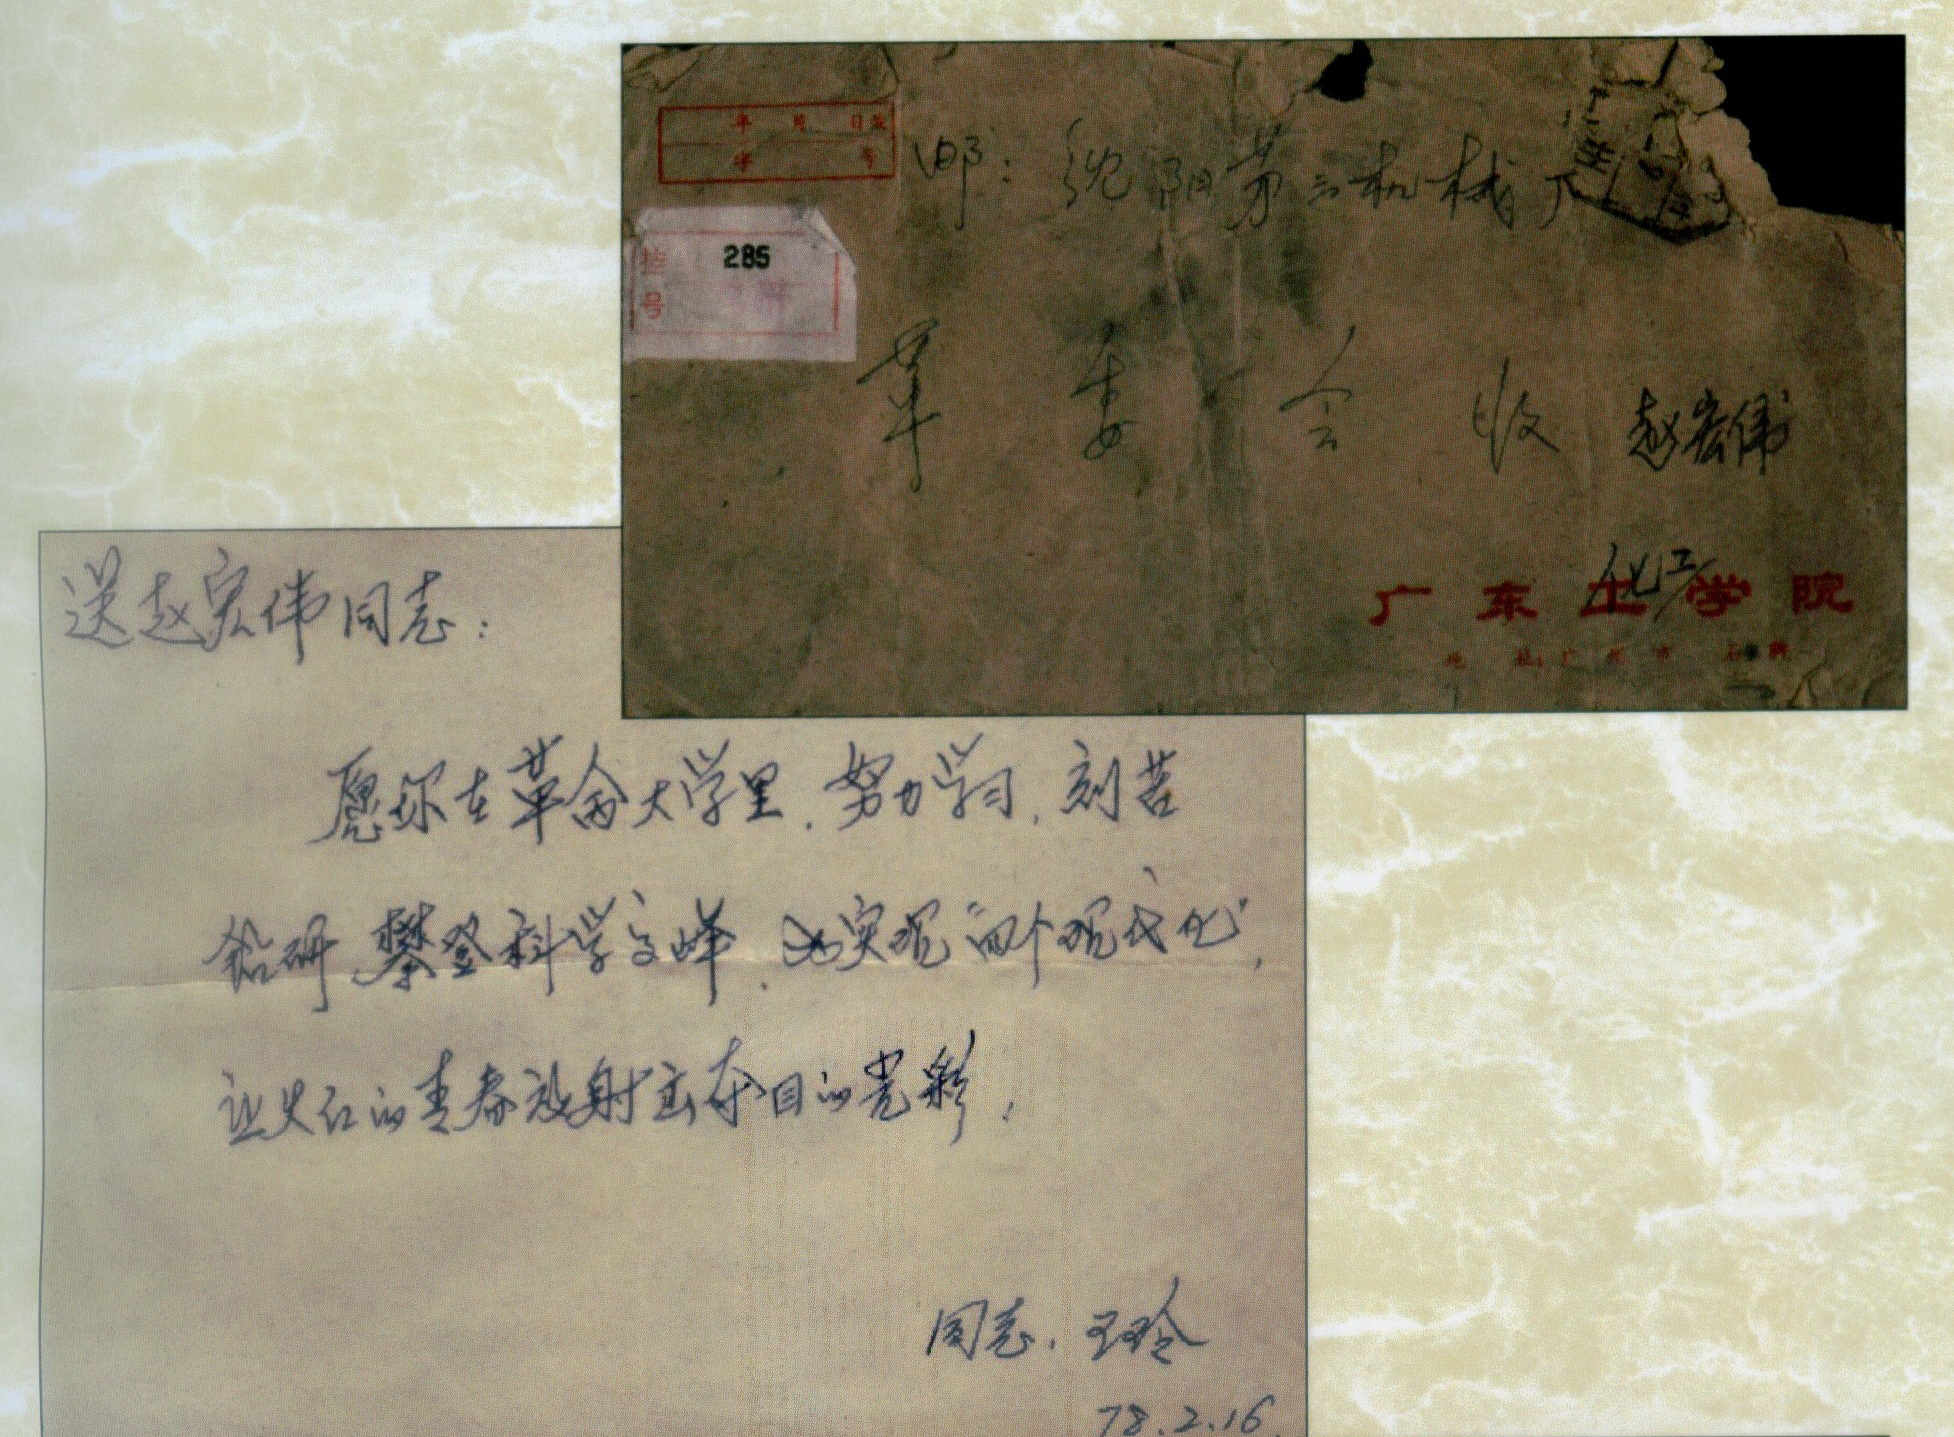 年 月 日发
字 号
邮：沈阳第三机械厂
挂号
285
革委会收 赵宏伟
化工
广东工学院
地址：广州市
送赵宏伟同志：
愿你在革命大学里，努力学习，刻苦
钻研，攀登科学高峰，为实现“四个现代化”，
让火红的青春放射出夺目的光彩！
同志：王玲
78.2.16